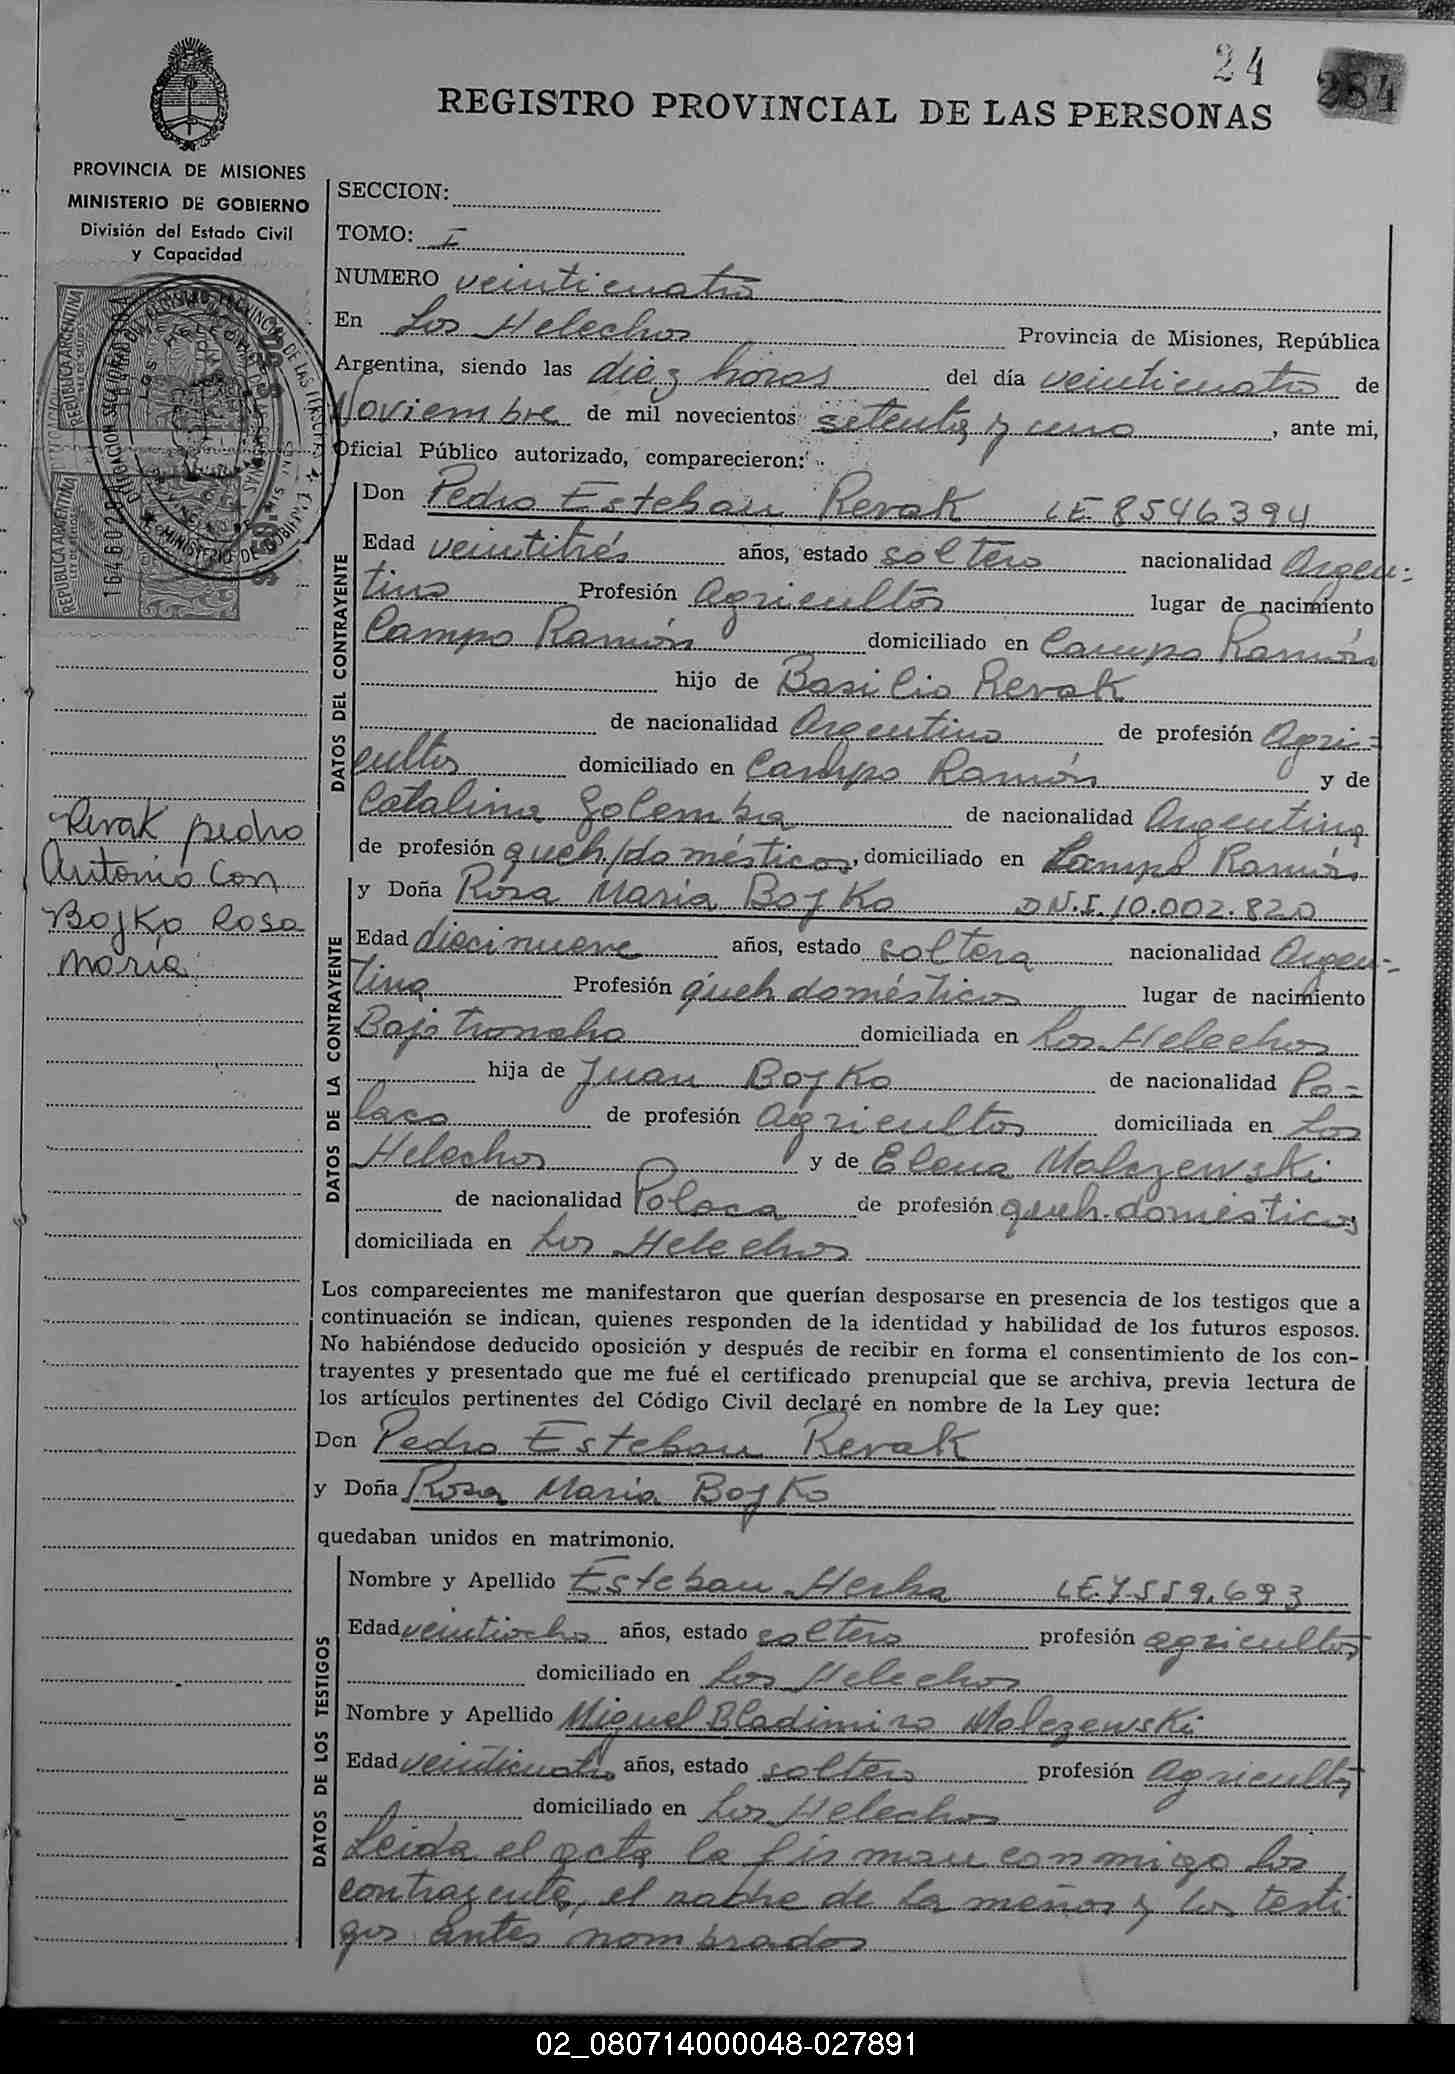 24 284
REGISTRO PROVINCIAL DE LAS PERSONAS
PROVINCIA DE MISIONES
MINISTERIO DE GOBIERNO
División del Estado Civil
y Capacidad
REPUBLICA ARGENTINA
REPUBLICA ARGENTINA
Revak pedro
Antonio con
Bojko Rosa
Maria
SECCION:
TOMO: I
NUMERO veinticuatro
En Los Helechos Provincia de Misiones, República
Argentina, siendo las diez horas del día veinticuatro de
Noviembre de mil novecientos setenta y uno, ante mi,
Oficial Público autorizado, comparecieron:
DATOS DEL CONTRAYENTE
Don Pedro Esteban Revak LE 8546394
Edad veintitrés años, estado soltero nacionalidad Argen-
tino Profesión Agricultor lugar de nacimiento
Campo Ramón domiciliado en Campo Ramón
hijo de Basilio Revak
de nacionalidad Argentino de profesión Agri-
cultor domiciliado en Campo Ramón y de
Catalina Golemba de nacionalidad Argentina
de profesión queh/domésticos, domiciliado en Campo Ramón
DATOS DE LA CONTRAYENTE
y Doña Rosa Maria Bojko D.N.I. 10.002.820
Edad diecinueve años, estado soltera nacionalidad Argen-
tina Profesión queh domésticos lugar de nacimiento
Bajo troncho domiciliada en Los Helechos
hija de Juan Bojko de nacionalidad Po-
laca de profesión Agricultor domiciliada en Los
Helechos y de Elena Malczewski
de nacionalidad Polaca de profesión queh. domésticos
domiciliada en Los Helechos
Los comparecientes me manifestaron que querían desposarse en presencia de los testigos que a
continuación se indican, quienes responden de la identidad y habilidad de los futuros esposos.
No habiéndose deducido oposición y después de recibir en forma el consentimiento de los con-
trayentes y presentado que me fué el certificado prenupcial que se archiva, previa lectura de
los artículos pertinentes del Código Civil declaré en nombre de la Ley que:
Don Pedro Esteban Revak
y Doña Rosa Maria Bojko
quedaban unidos en matrimonio.
DATOS DE LOS TESTIGOS
Nombre y Apellido Esteban Herha LE.7559.693
Edad veintiocho años, estado soltero profesión agricultor
domiciliado en Los Helechos
Nombre y Apellido Miguel Bladimiro Malczewski
Edad veinticuatro años, estado soltero profesión Agricultor
domiciliado en Los Helechos
Leida el acta la firman conmigo los
contrayentes, el padre de la menor y los testi
gos antes nombrados
02_080714000048-027891